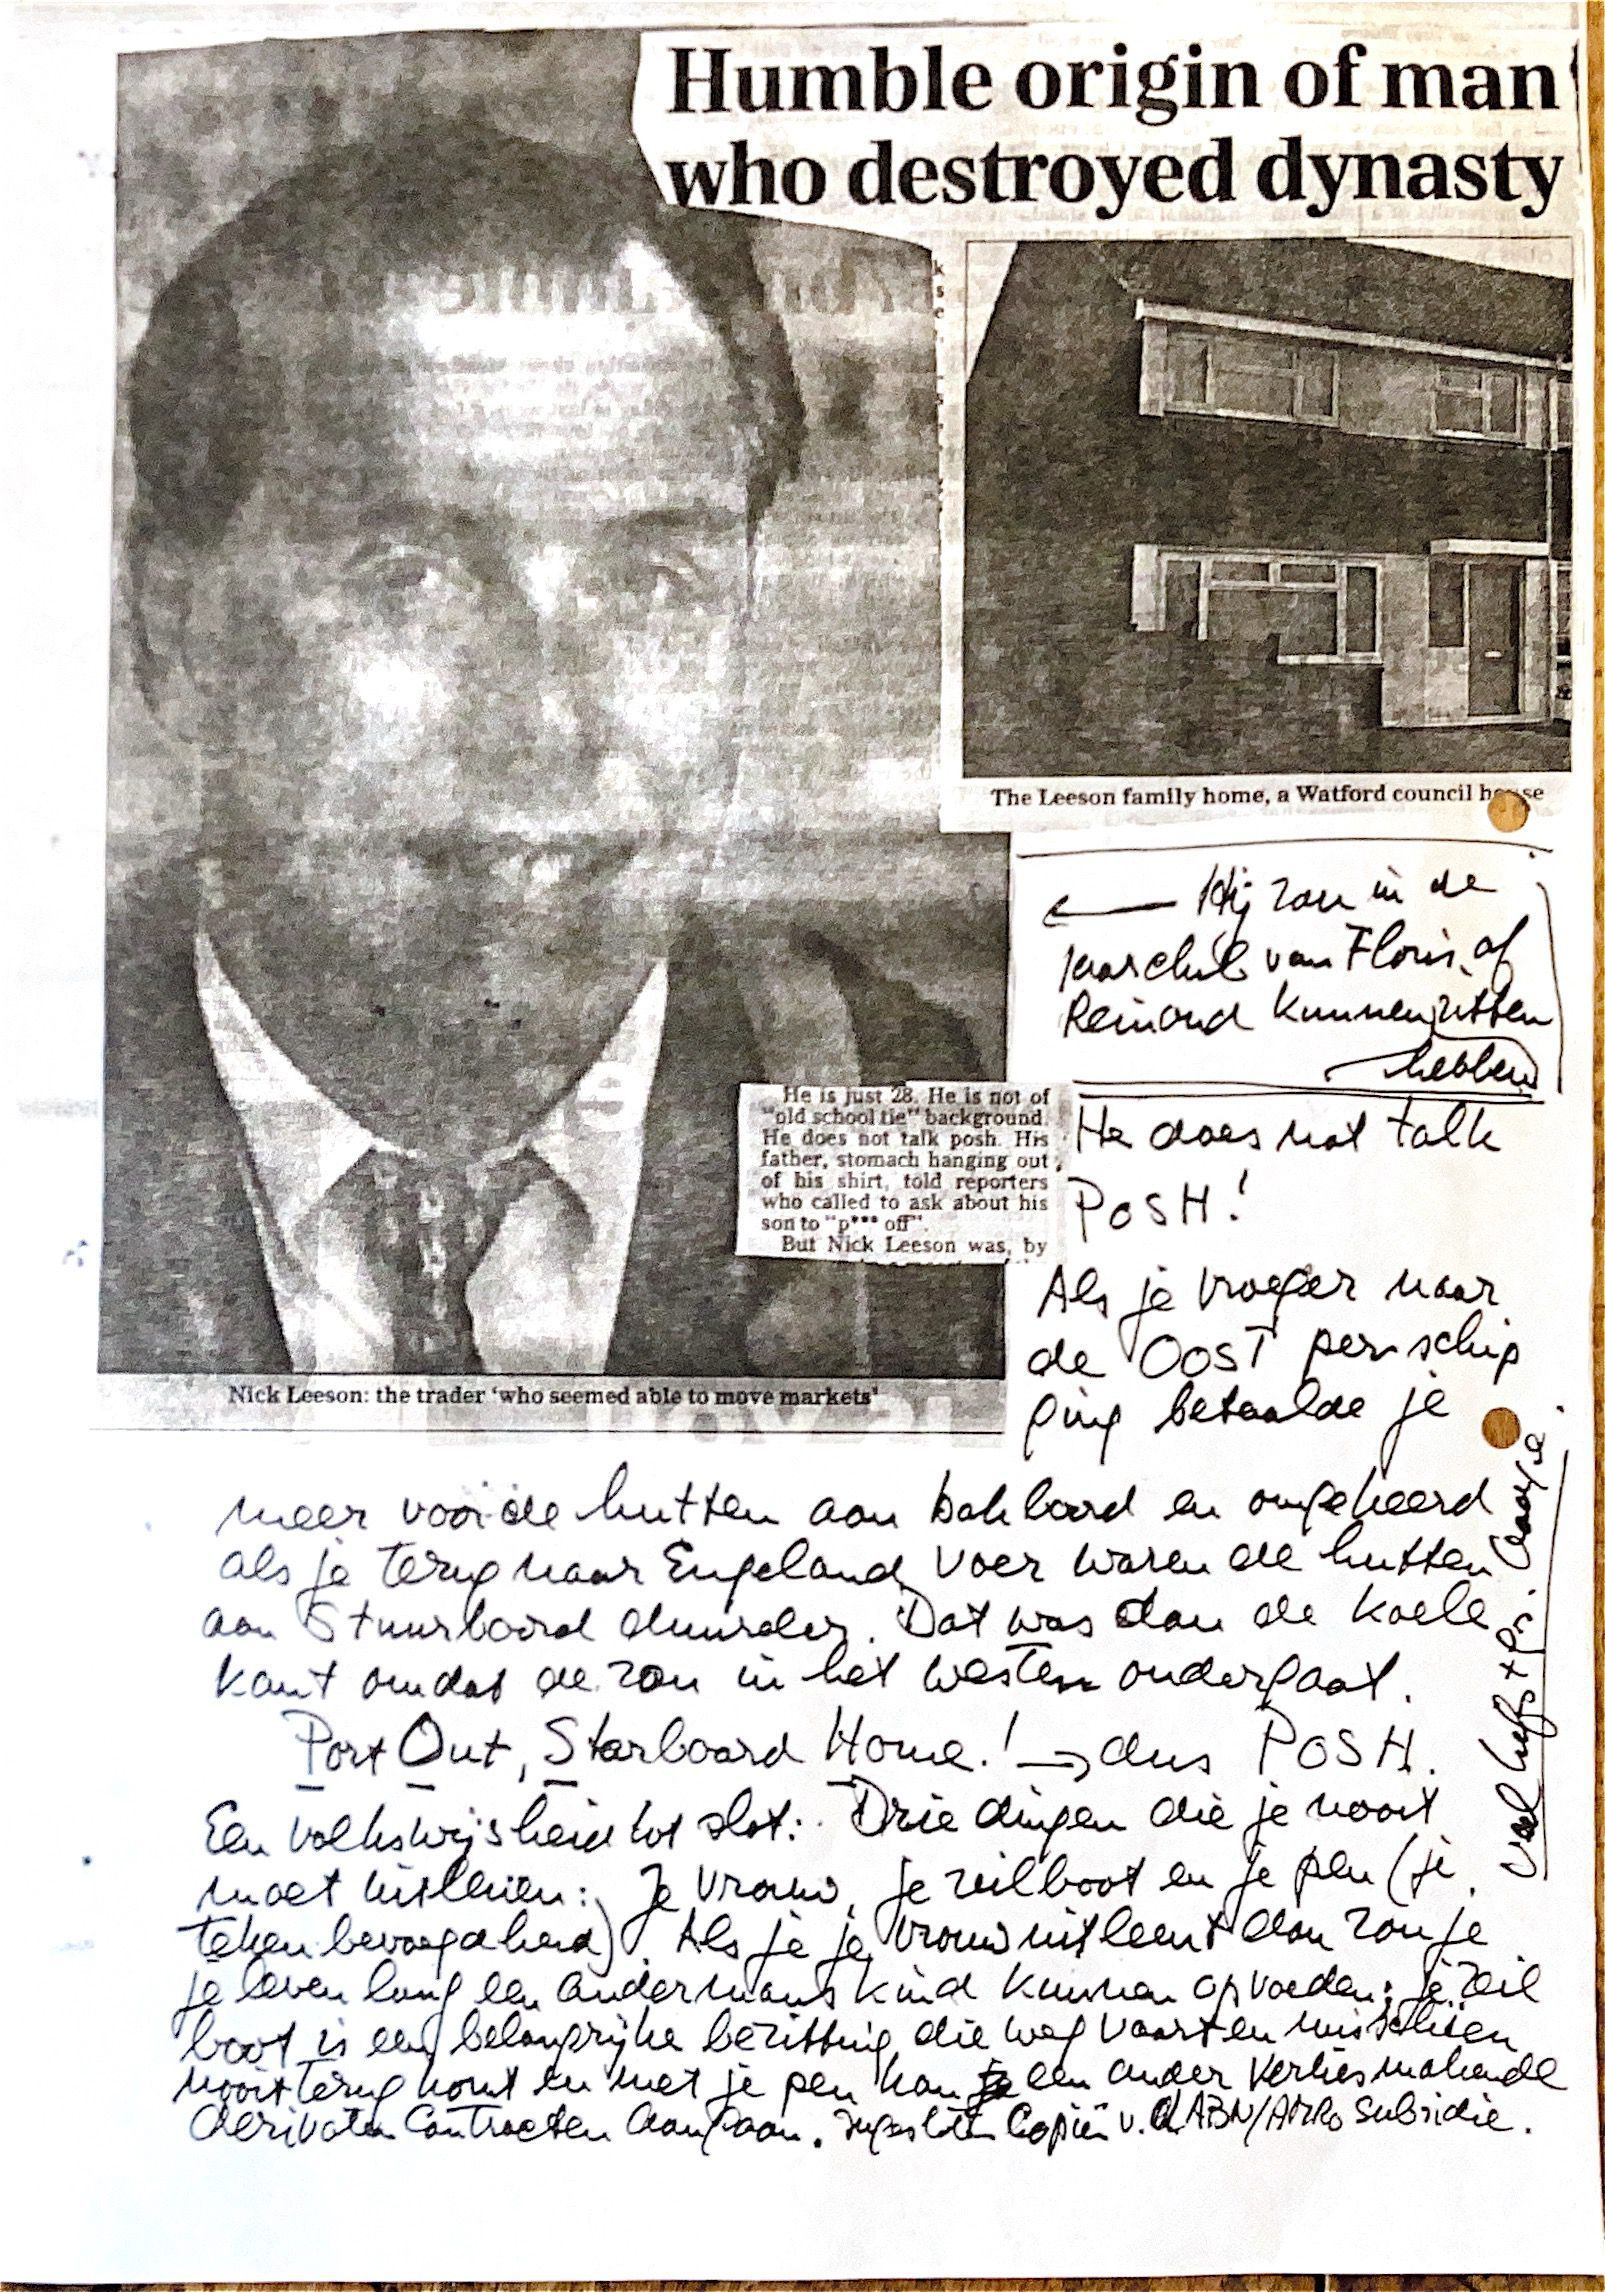 Humble origin of man
who destroyed dynasty
The Leeson family home, a Watford council house
← Hij zou in de
jaarclub van Floris of
Reinoud kunnen zitten
hebben
He is just 28. He is not of
"old school tie" background.
He does not talk posh. His
father, stomach hanging out
of his shirt, told reporters
who called to ask about his
son to "p*** off".
But Nick Leeson was, by
He does not talk
POSH!
Nick Leeson: the trader 'who seemed able to move markets'
Als je vroeger naar
de OOST per schip
ging betaalde je
meer voor de hutten aan bakboord en omgekeerd
als je terug naar Engeland voer waren de hutten
aan Stuurboord duurder. Dat was dan de koele
kant omdat de zon in het westen ondergaat.
Port Out, Starboard Home! → dus POSH.
Een volkswijsheid tot slot: Drie dingen die je nooit
moet uitlenen: Je vrouw, je zeilboot en je pen (je
tekenbevoegdheid). Als je je vrouw uitleent dan zou je
je leven lang een andermans kind kunnen opvoeden; je zeil
boot is een belangrijke bezitting die weg vaart en misschien
nooit terug komt en met je pen kan een ander verliesmakende
derivaten contracten aangaan. Ingesloten Copiën v. d ABN/AMRO subsidie.
veel liefs + fr.